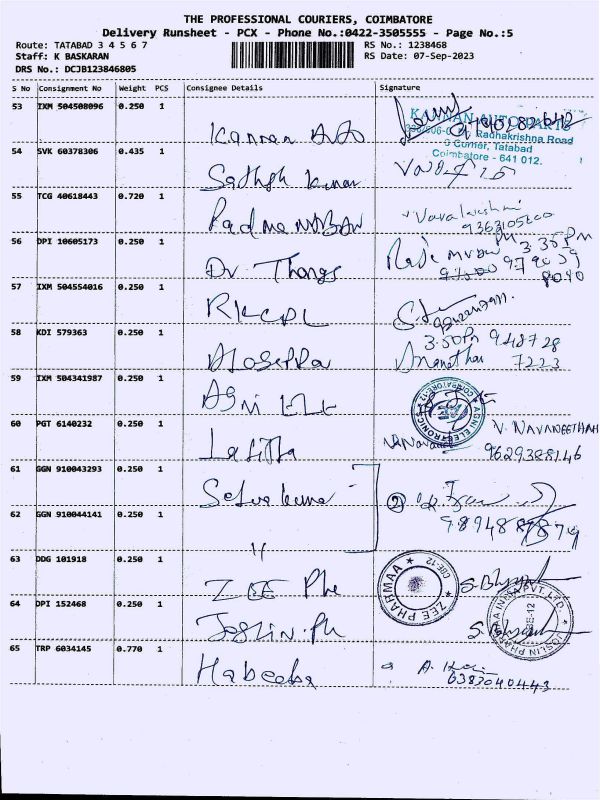 THE PROFESSIONAL COURIERS, COIMBATORE
Delivery Runsheet - PCX - Phone No.:0422-3505555 - Page No.:5
Route: TATABAD 3 4 5 6 7
RS No.: 1238468
Staff: K BASKARAN
RS Date: 07-Sep-2023
DRS No.: DCJB123846805
S No Consignment No Weight PCS Consignee Details Signature
53 IXM 504508096 0.250 1
Kannan Auto
KANNAN AUTO PARTS
Radhakrishna Road
Corner, Tatabad
Coimbatore - 641 012.
54 SVK 60378306 0.435 1
Sathish Kumar
55 TCG 40618443 0.720 1
Padma
Varalakshmi
9363105600
56 DPI 10605173 0.250 1
Dr. Thangs
3.35 Pm
57 IXM 504554016 0.250 1
RKCPL
58 KDI 579363 0.250 1
3.50Pm 948728
7223
59 IXM 504341987 0.250 1
Agni Ele
AGNI ELECTRONIC
COIMBATORE-12
60 PGT 6140232 0.250 1
Lalitha
V. NAVANEETHAH
9629388146
61 GGN 910043293 0.250 1
Selvakumar
2
62 GGN 910044141 0.250 1
"
63 DDG 101918 0.250 1
ZEE Pha
ZEE PHARMAA
CBE-12
64 DPI 152468 0.250 1
Joslin. Ph
JOSLIN PHARMAA INDIA PVT. LTD.
CBE-12
65 TRP 6034145 0.770 1
Habeeba
6383040443